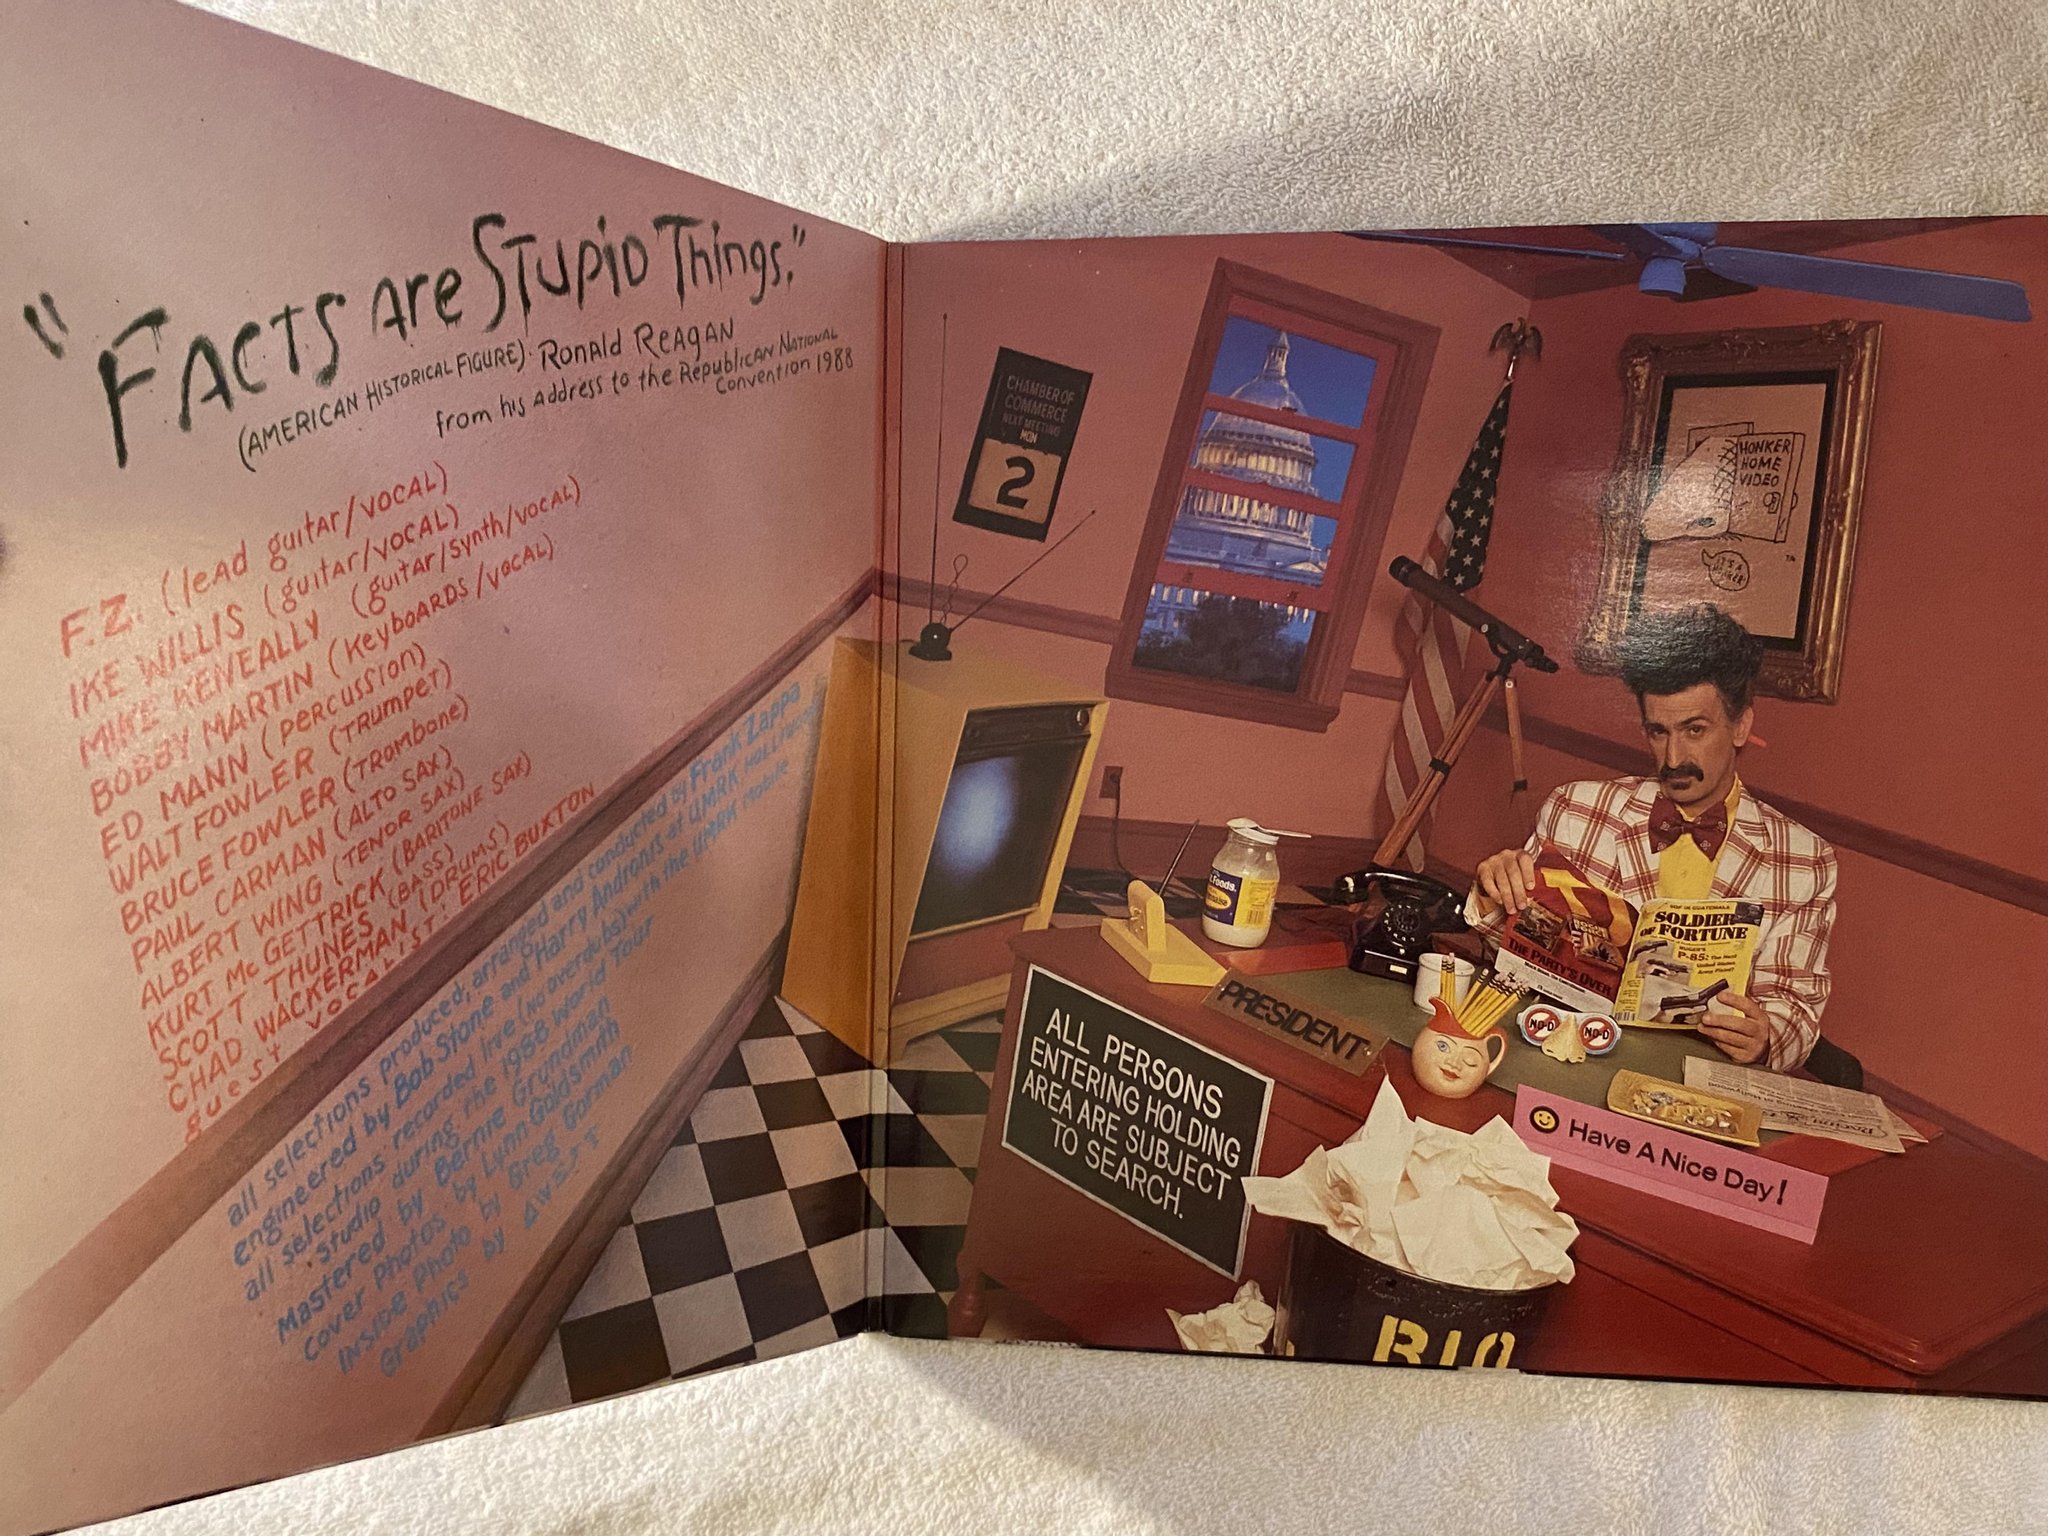 "FACTS ARE STUPID THINGS."
(AMERICAN HISTORICAL FIGURE) RONALD REAGAN
from his address to the REPUBLICAN NATIONAL
CONVENTION 1988
F.Z. (lead guitar/VOCAL)
IKE WILLIS (guitar/VOCAL)
MIKE KENEALLY (guitar/synth/VOCAL)
BOBBY MARTIN (keyboards/VOCAL)
ED MANN (percussion)
WALT FOWLER (TRUMPET)
BRUCE FOWLER (TROMBONE)
PAUL CARMAN (ALTO SAX)
ALBERT WING (TENOR SAX)
KURT McGETTRICK (BARITONE SAX)
SCOTT THUNES (BASS)
CHAD WACKERMAN (DRUMS)
guest VOCALIST: ERIC BUXTON
all selections produced, arranged and conducted by Frank Zappa
engineered by Bob Stone and Harry Andronis at UMRK Hollywood
all selections recorded live (no overdubs) with the UMRK Mobile
Studio during the 1988 World Tour
Mastered by Bernie Grundman
Cover Photos by Lynn Goldsmith
Inside Photo by Greg Gorman
Graphics by AWEST
CHAMBER OF
COMMERCE
NEXT MEETING
MON
2
HONKER
HOME
VIDEO
IT'S A
HONKER!
TM
Foods.
SOF IN GUATEMALA
SOLDIER
OF FORTUNE
RUGER'S
P-85: The Next
United States
Army Pistol?
THE PARTY'S OVER
PRESIDENT
NO-D
NO-D
ALL PERSONS
ENTERING HOLDING
AREA ARE SUBJECT
TO SEARCH.
Have A Nice Day!
BIO